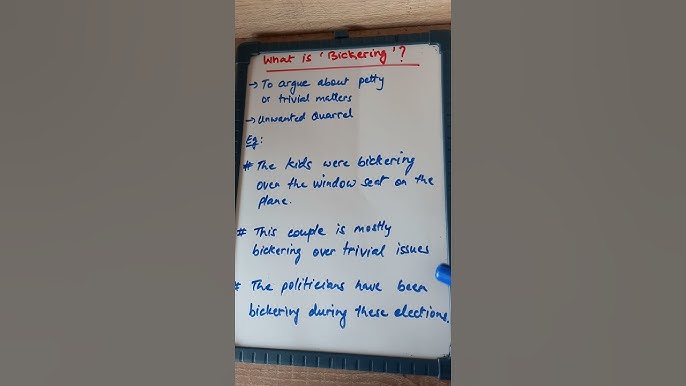 What is 'Bickering'?
→ To argue about petty
or trivial matters
→ Unwanted Quarrel
Eg:
# The kids were bickering
over the window seat on the
plane.
# This couple is mostly
bickering over trivial issues
* The politicians have been
bickering during these elections.